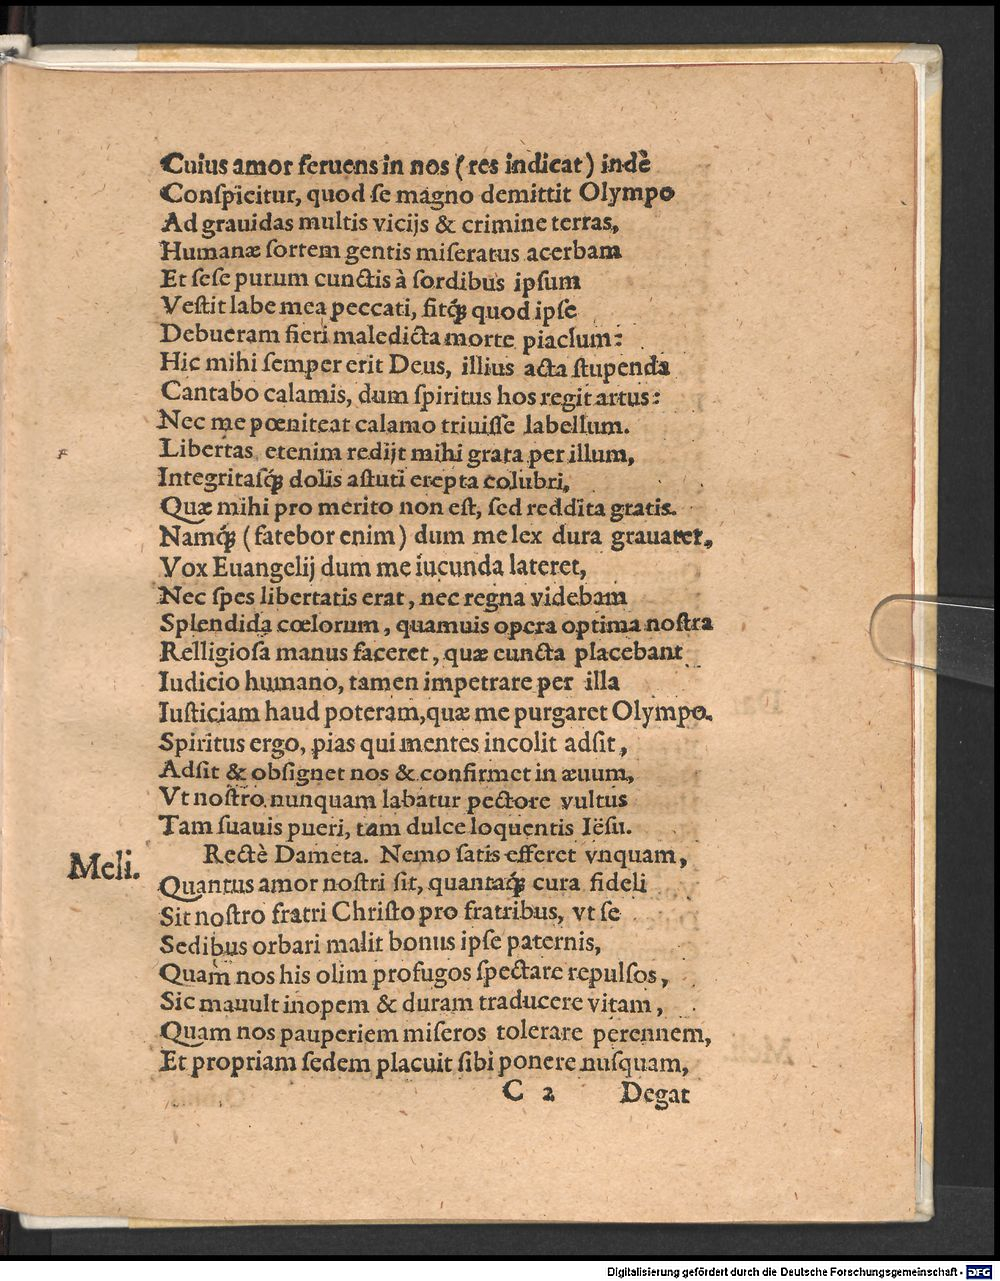 Cuius amor feruens in nos (res indicat) indè
Conſpicitur, quod ſe magno demittit Olympo
Ad grauidas multis vicijs & crimine terras,
Humanæ ſortem gentis miſeratus acerbam
Et ſeſe purum cunctis à ſordibus ipſum
Veſtit labe mea peccati, fitq́ꝫ quod ipſe
Debueram fieri maledicta morte piaclum:
Hic mihi ſemper erit Deus, illius acta ſtupenda
Cantabo calamis, dum ſpiritus hos regit artus:
Nec me pœniteat calamo triuiſſe labellum.
Libertas etenim redijt mihi grata per illum,
Integritaſq́ꝫ dolis aſtuti erepta colubri,
Quæ mihi pro merito non eſt, ſed reddita gratis.
Namq́ꝫ (fatebor enim) dum me lex dura grauaret,
Vox Euangelij dum me iucunda lateret,
Nec ſpes libertatis erat, nec regna videbam
Splendida cœlorum, quamuis opera optima noſtra
Relligioſa manus faceret, quæ cuncta placebant
Iudicio humano, tamen impetrare per illa
Iuſticiam haud poteram, quæ me purgaret Olympo.
Spiritus ergo, pias qui mentes incolit adſit,
Adſit & obſignet nos & confirmet in æuum,
Vt noſtro nunquam labatur pectore vultus
Tam ſuauis pueri, tam dulce loquentis Iëſu.
Meli. Rectè Dameta. Nemo ſatis efferet vnquam,
Quantus amor noſtri ſit, quantaq́ꝫ cura fideli
Sit noſtro fratri Chriſto pro fratribus, vt ſe
Sedibus orbari malit bonus ipſe paternis,
Quam nos his olim profugos ſpectare repulſos,
Sic mauult inopem & duram traducere vitam,
Quam nos pauperiem miſeros tolerare perennem,
Et propriam ſedem placuit ſibi ponere nuſquam,
C 2 Degat
Digitalisierung gefördert durch die Deutsche Forschungsgemeinschaft - DFG